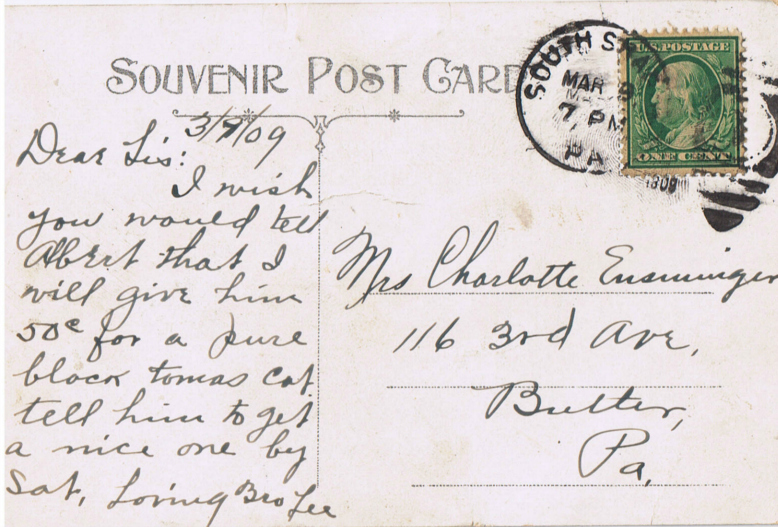 SOUVENIR POST CARD
SOUTH
MAR
7 PM
PA
1909
U.S. POSTAGE
ONE CENT
3/9/09
Dear Sis:
I wish
you would tell
Albert that I
will give him
50c for a pure
black tomas cat
tell him to get
a nice one by
Sat, Loving Bro Lee
Mrs Charlotte Ensminger
116 3rd Ave,
Butler,
Pa,